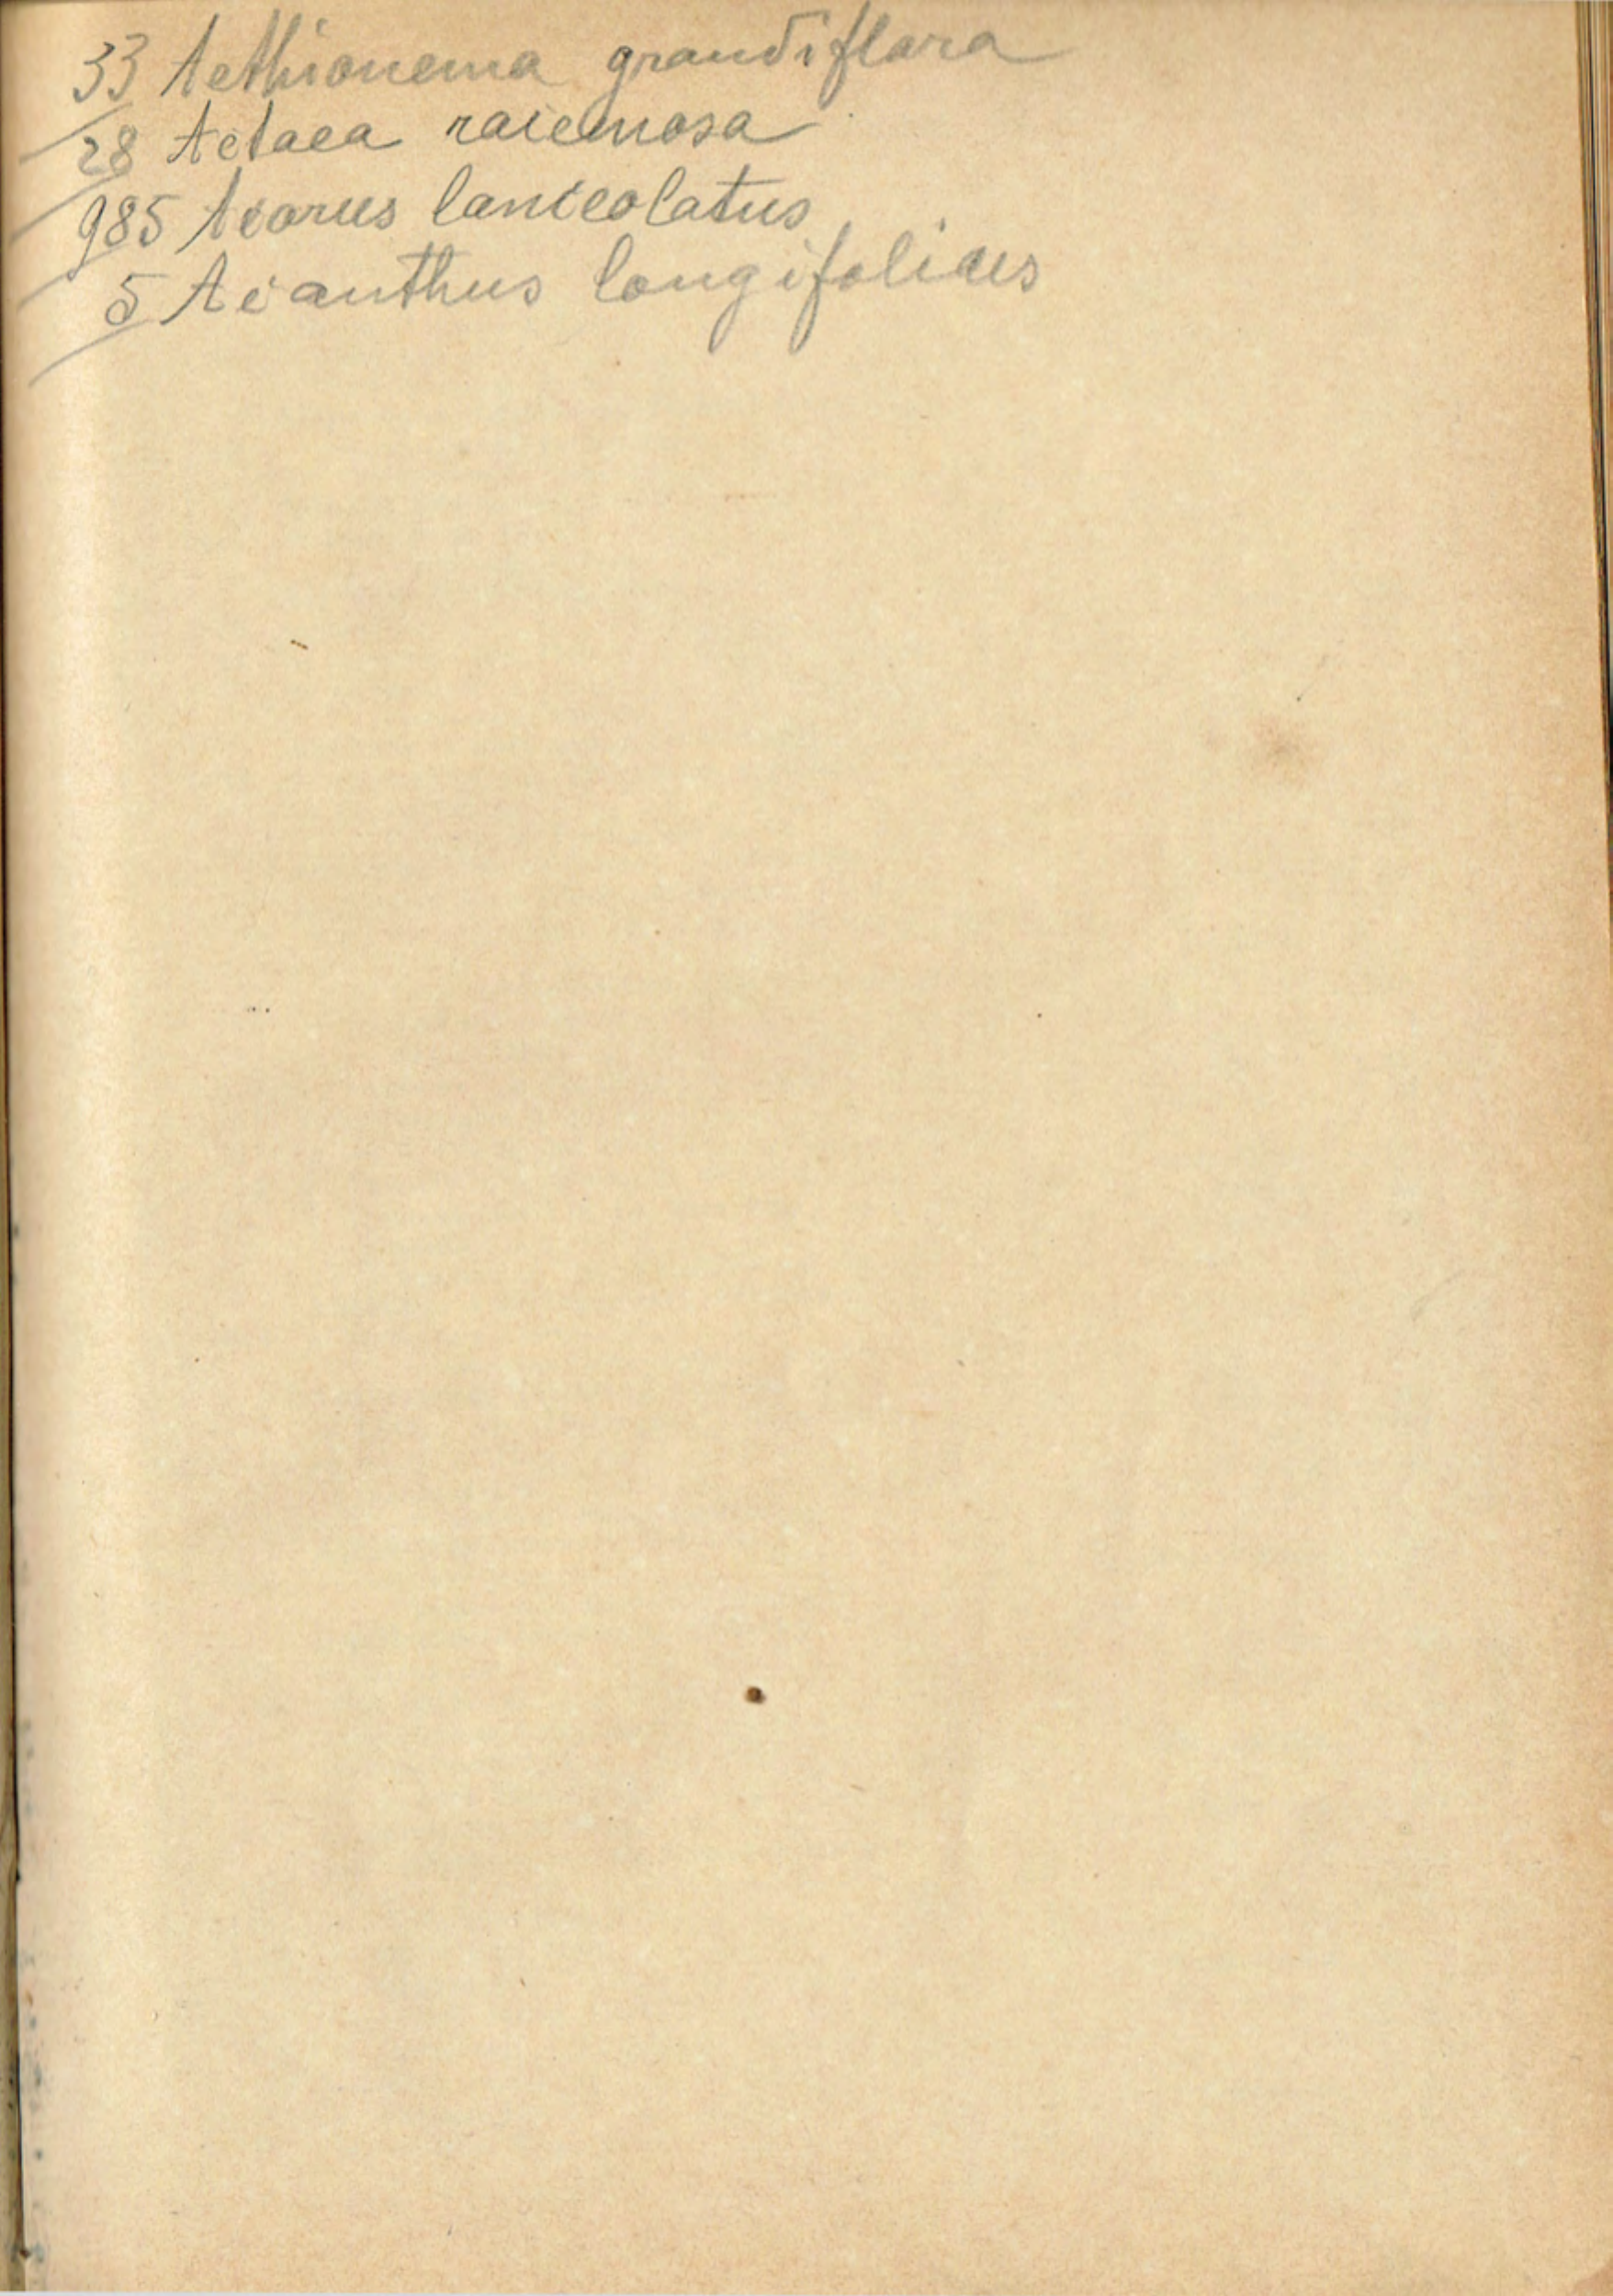 33 Aethionema grandiflora
28 Actaea racemosa
985 Acorus lanceolatus
5 Acanthus longifolius